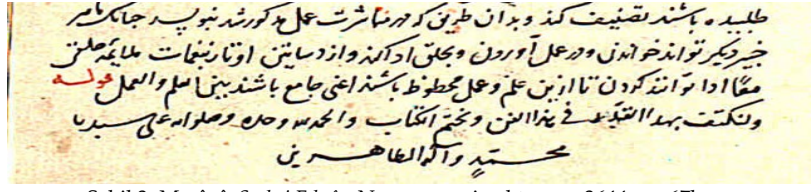 طلبیده باشند تصنیف کند و بدان طریق که در مباشرت عمل مذکور شد بنویسد چنانکه ماهر
خبیر دیگر تواند خواندن و در عمل آوردن و بحلق ادا کند و از دساتین اوتار نغمات ملایمه حلق
معاً ادا توانند کردن تا ازین علم و عمل محظوظ باشند اعنی جامع باشند بین العلم و العمل قوله
ولنکتف بهذا القدر فی هذا الفن و نختم الکتاب والحمد لله وحده وصلواته علی سیدنا
محمد وآله الطاهرین
Şekil 2: 2644